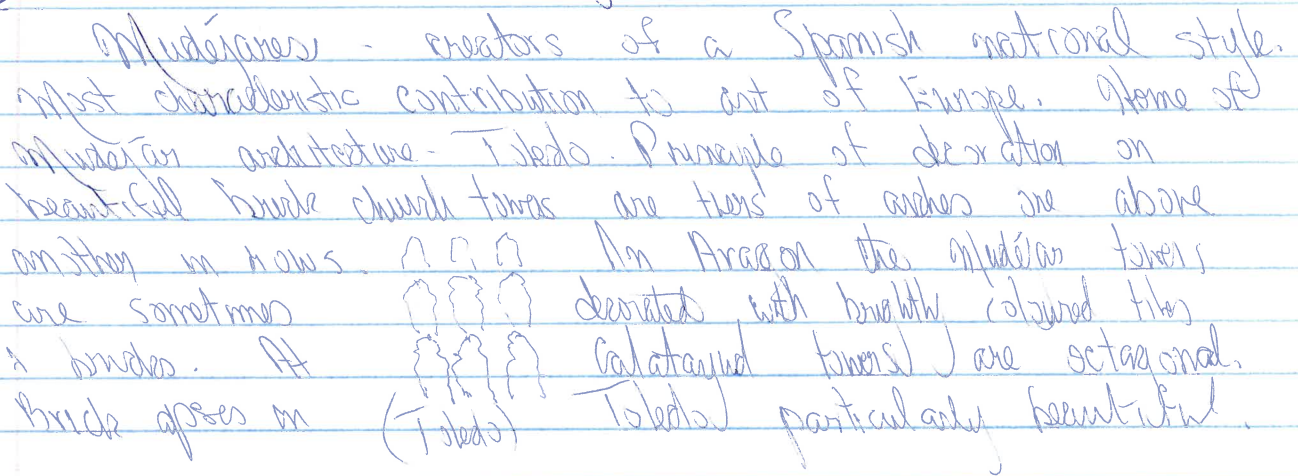 Mudéjares - creators of a Spanish national style.
Most characteristic contribution to art of Europe. Home of
Mudéjar architecture - Toledo. Principle of decoration on
beautiful brick church towers are tiers of arches one above
another in rows. In Aragon the Mudéjar towers
are sometimes decorated with brightly coloured tiles
& bricks. At Calatayud towers are octagonal.
Brick apses in (Toledo) Toledo particularly beautiful.